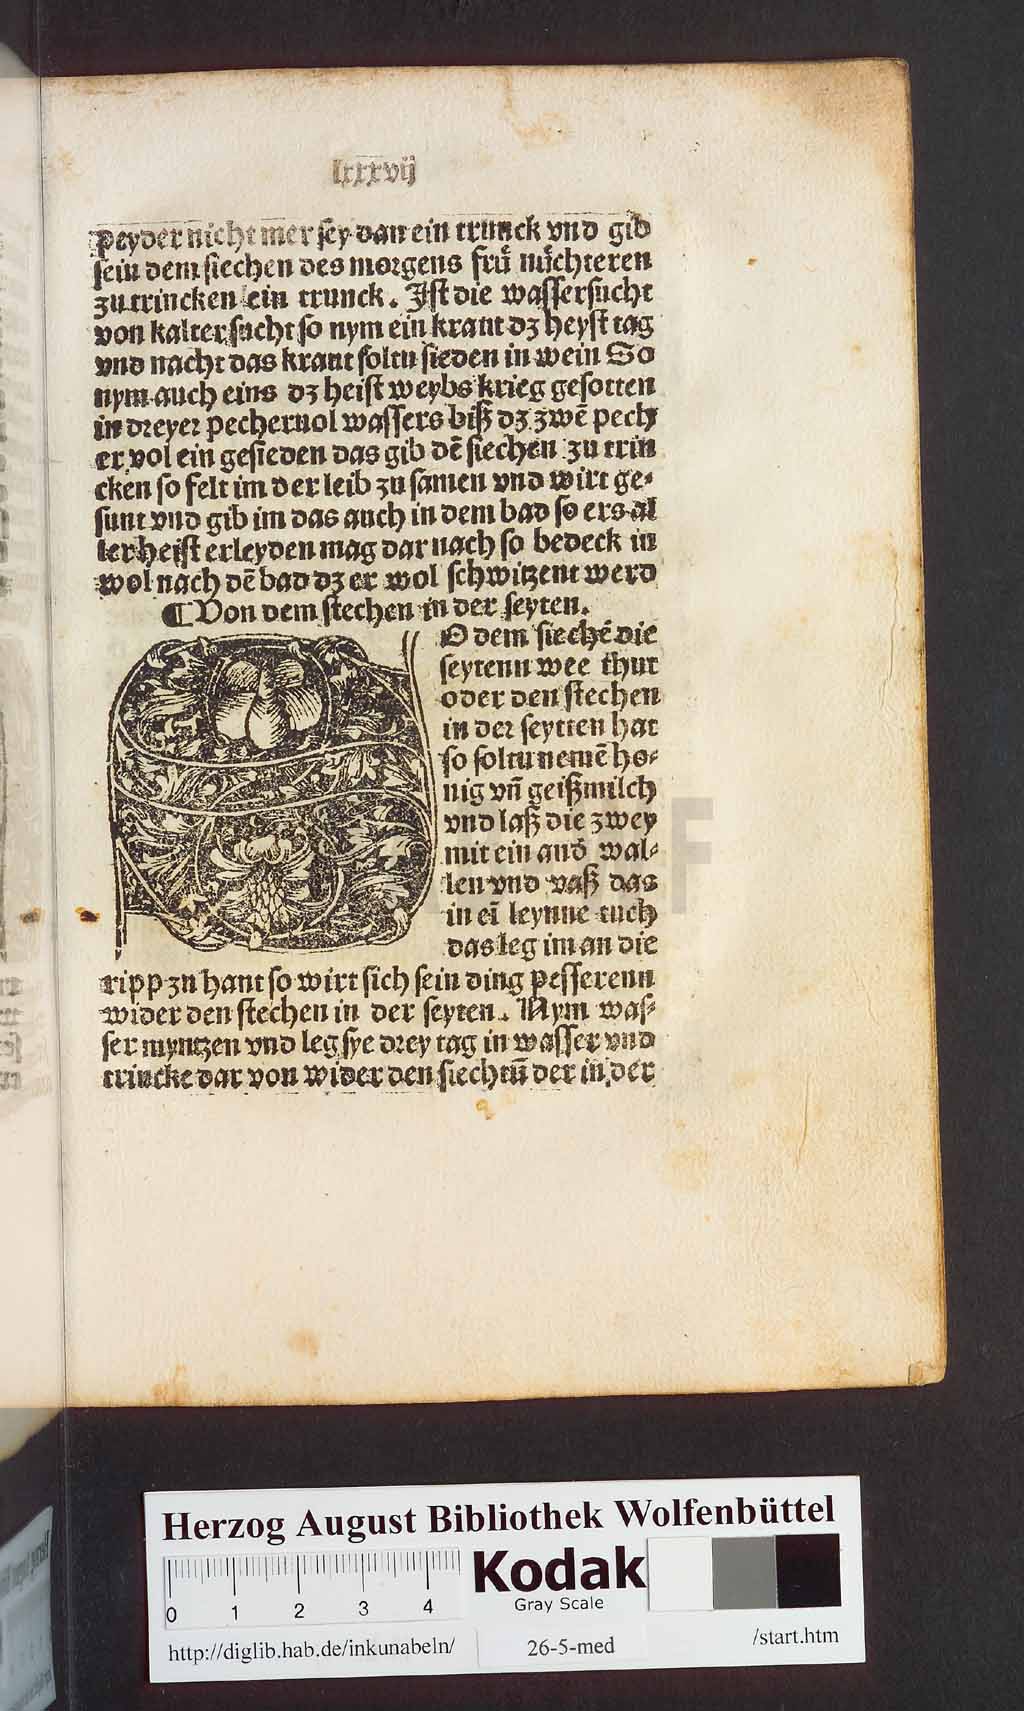 lxxxvij
peyder nicht mer sey dan ein trunck vnd gib
sein dem siechen des morgens frů nůchteren
zu trincken ein trunck. Jst die wassersucht
von kalter sucht so nym ein kraut dz heyst tag
vnd nacht das kraut soltu sieden in wein So
nym auch eins dz heist weybs krieg gesotten
in dreyer pecher uol wassers biß dz zwē pech
er vol ein gesieden das gib dē siechen zu trin
cken so felt im der leib zu samen vnd wirt ge-
sunt vnd gib im das auch in dem bad so ers al
ler heist erleyden mag dar nach so bedeck in
wol nach dē bad dz er wol schwitzent werd
¶ Von dem stechen in der seyten.
O dem siechē die
seytenn wee thut
oder den stechen
in der seytten hat
so soltu nemē ho-
nig vñ geißmilch
vnd laß die zwey
mit ein and̄ wal-
len vnd vaß das
in eī leynne tuch
das leg im an die
ripp zu hant so wirt sich sein ding pesserenn
wider den stechen in der seyten. Nym was-
ser myntzen vnd leg sye drey tag in wasser vnd
trincke dar von wider den siechtū der in der
Herzog August Bibliothek Wolfenbüttel
Kodak
Gray Scale
0 1 2 3 4
http://diglib.hab.de/inkunabeln/ 26-5-med /start.htm